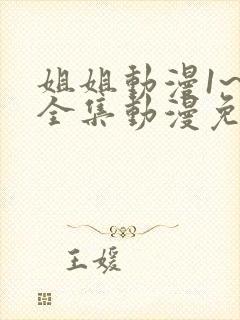 姐姐動漫1~
全集動漫免
王媛